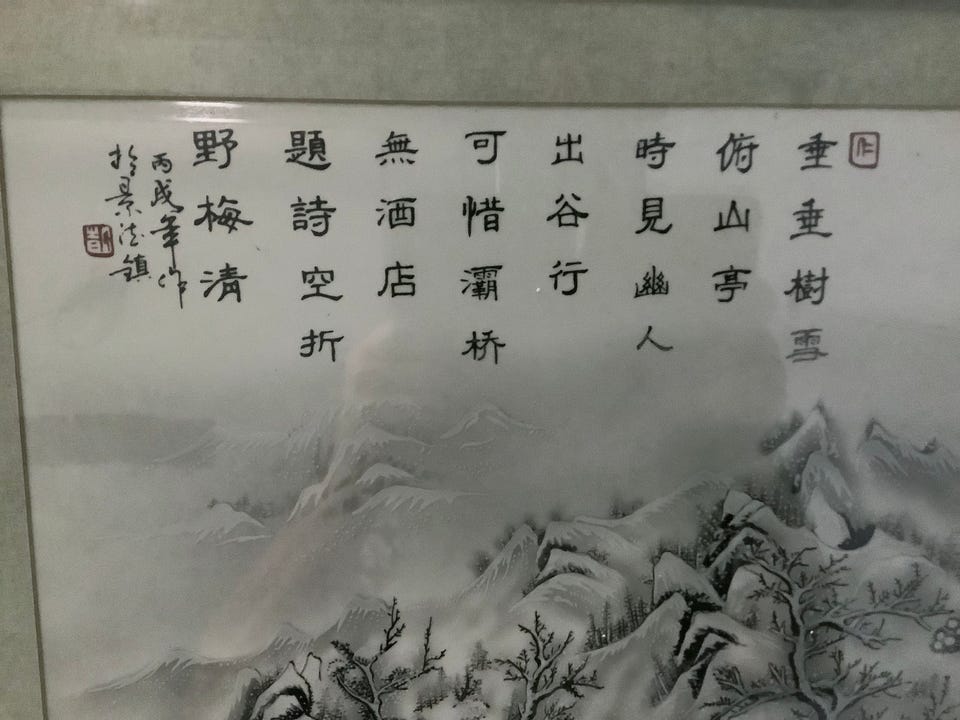 垂垂樹雪
俯山亭
時見幽人
出谷行
可惜灞桥
無酒店
題詩空折
野梅清
丙戌年作
於景德鎮